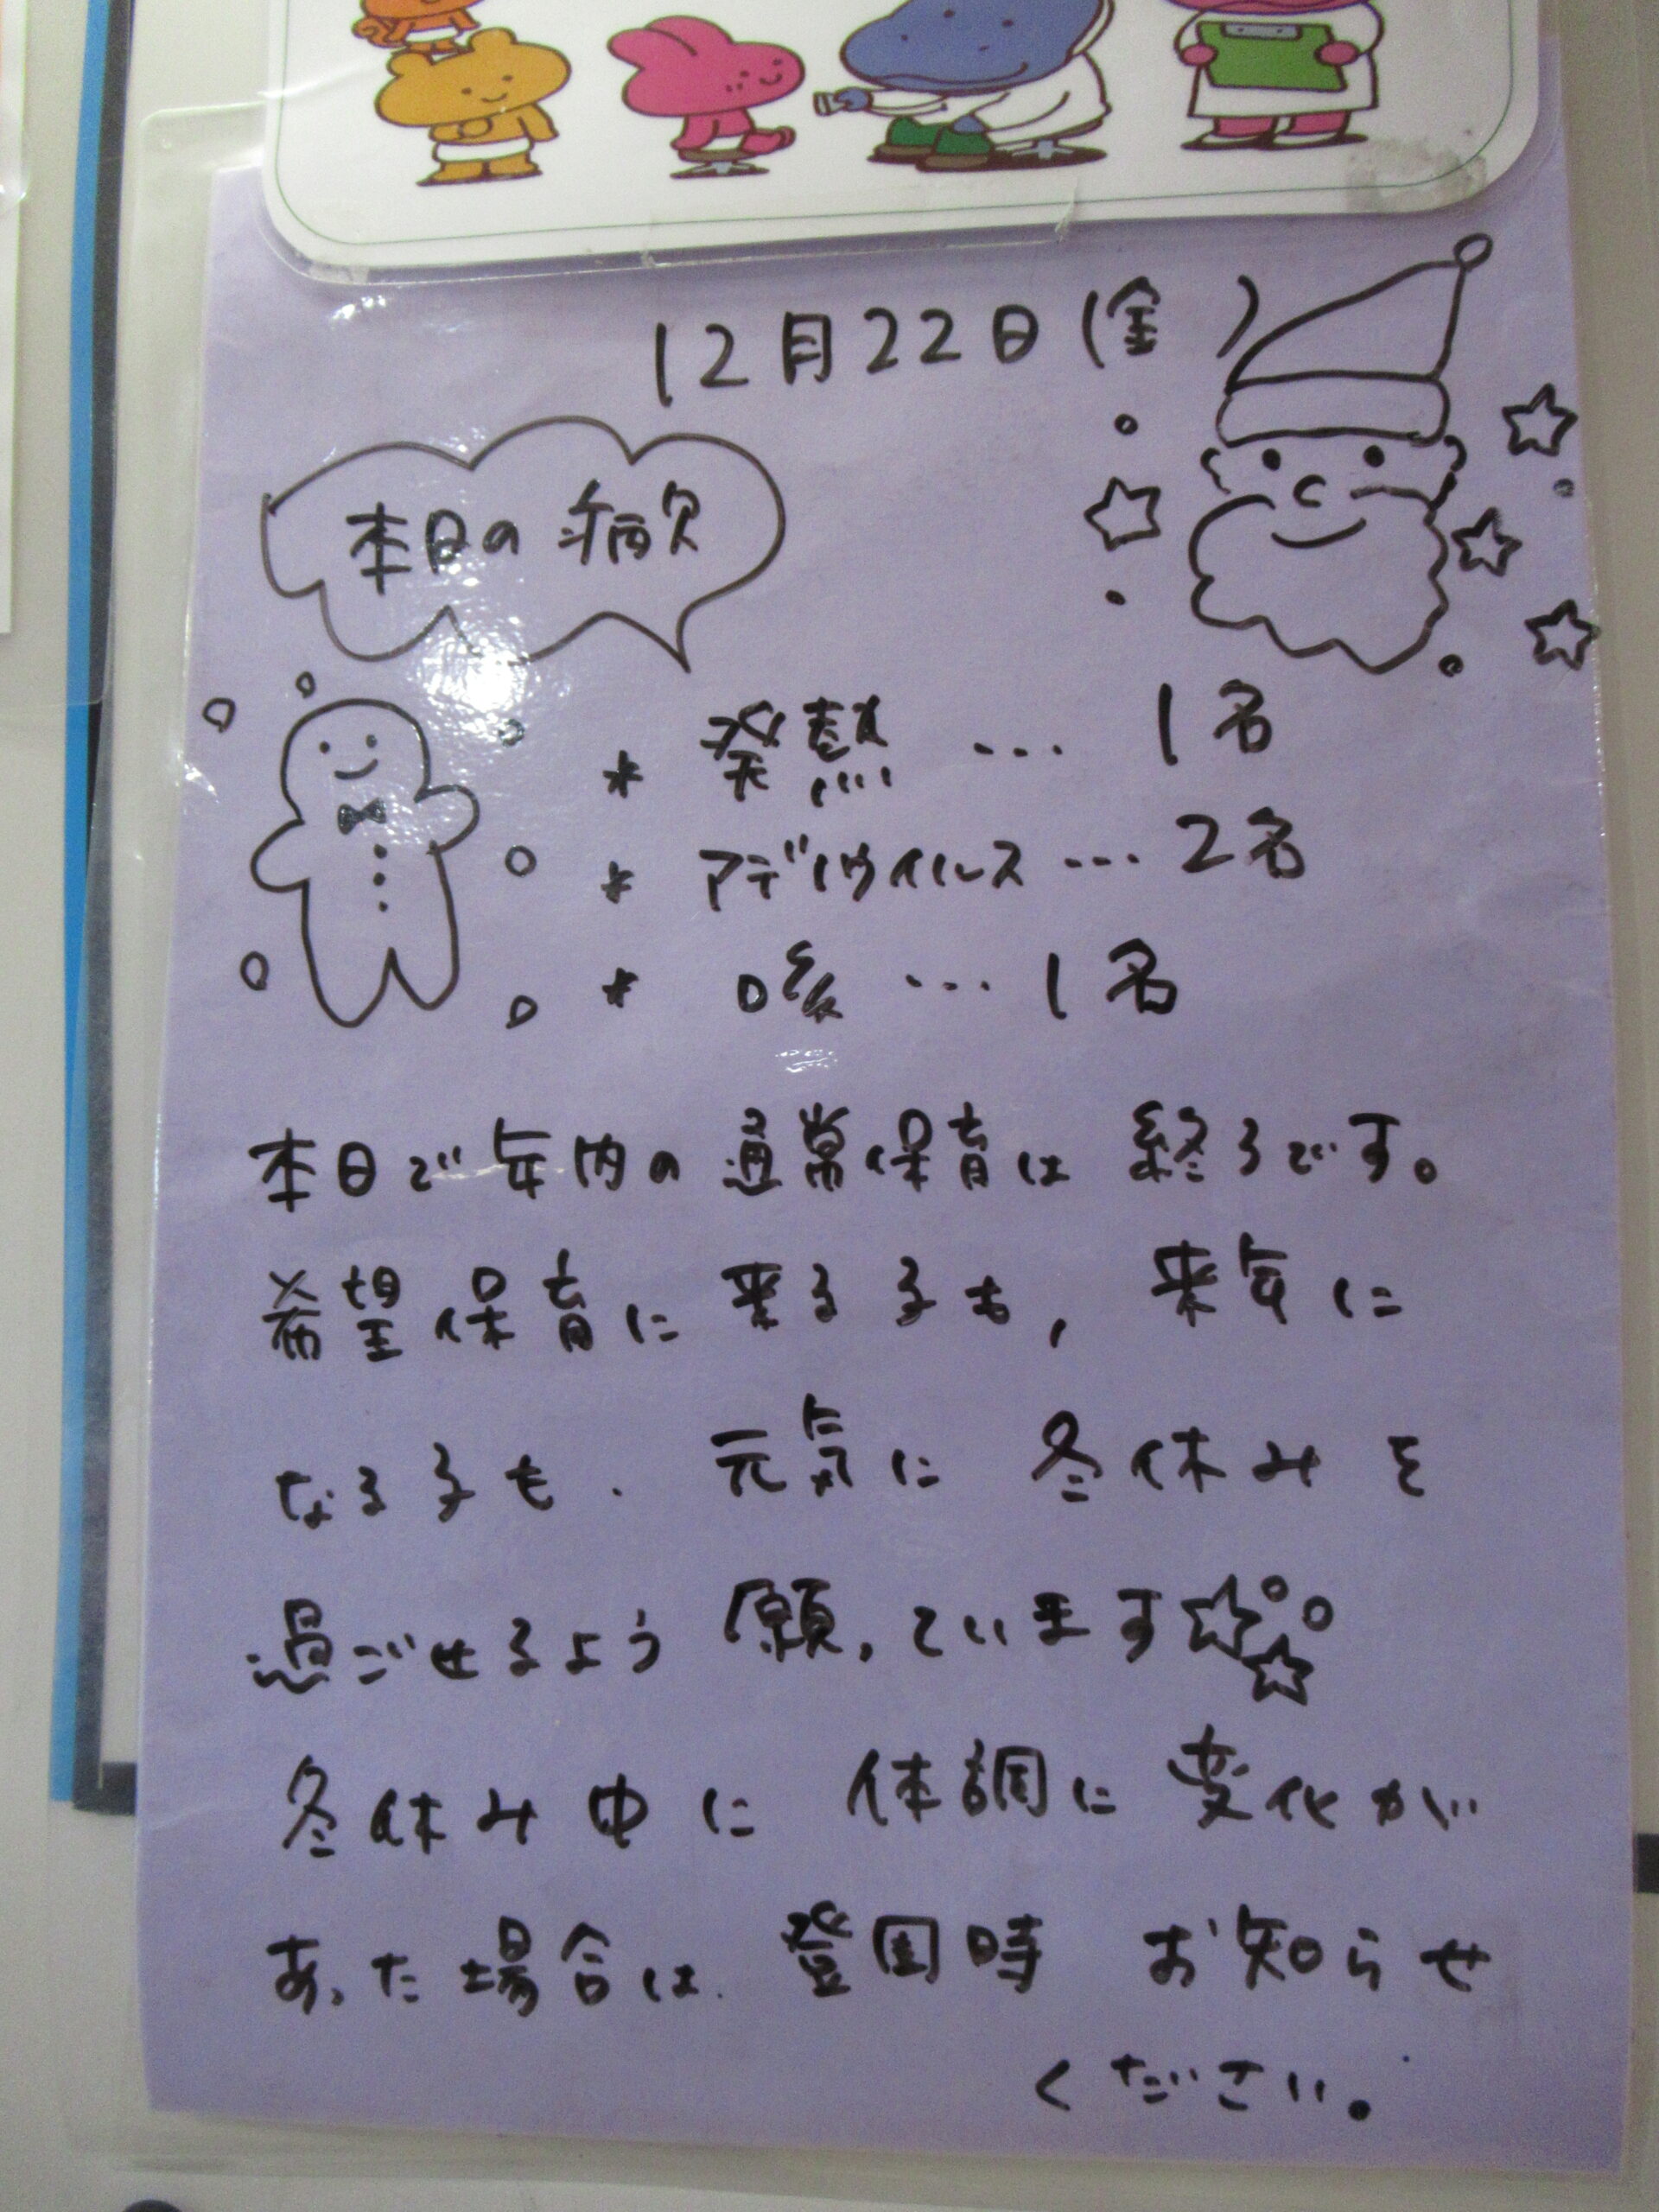 12月22日(金)
本日の病欠
* 発熱 … 1名
* アデノウイルス … 2名
* 咳 … 1名
本日で年内の通常保育は終了です。
希望保育に来る子も、来年に
なる子も、元気に冬休みを
過ごせるよう願っています☆☆
冬休み中に体調に変化が
あった場合は、登園時お知らせ
ください。